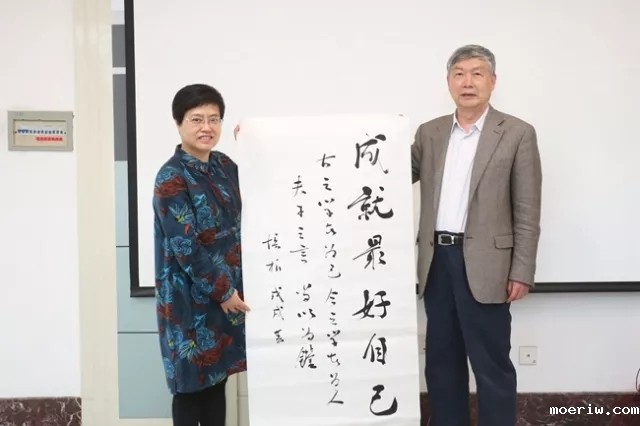 成就最好自己
古之学者为己今之学者为人
夫子之言当以为鑑
戊戌
www.moeriw.com